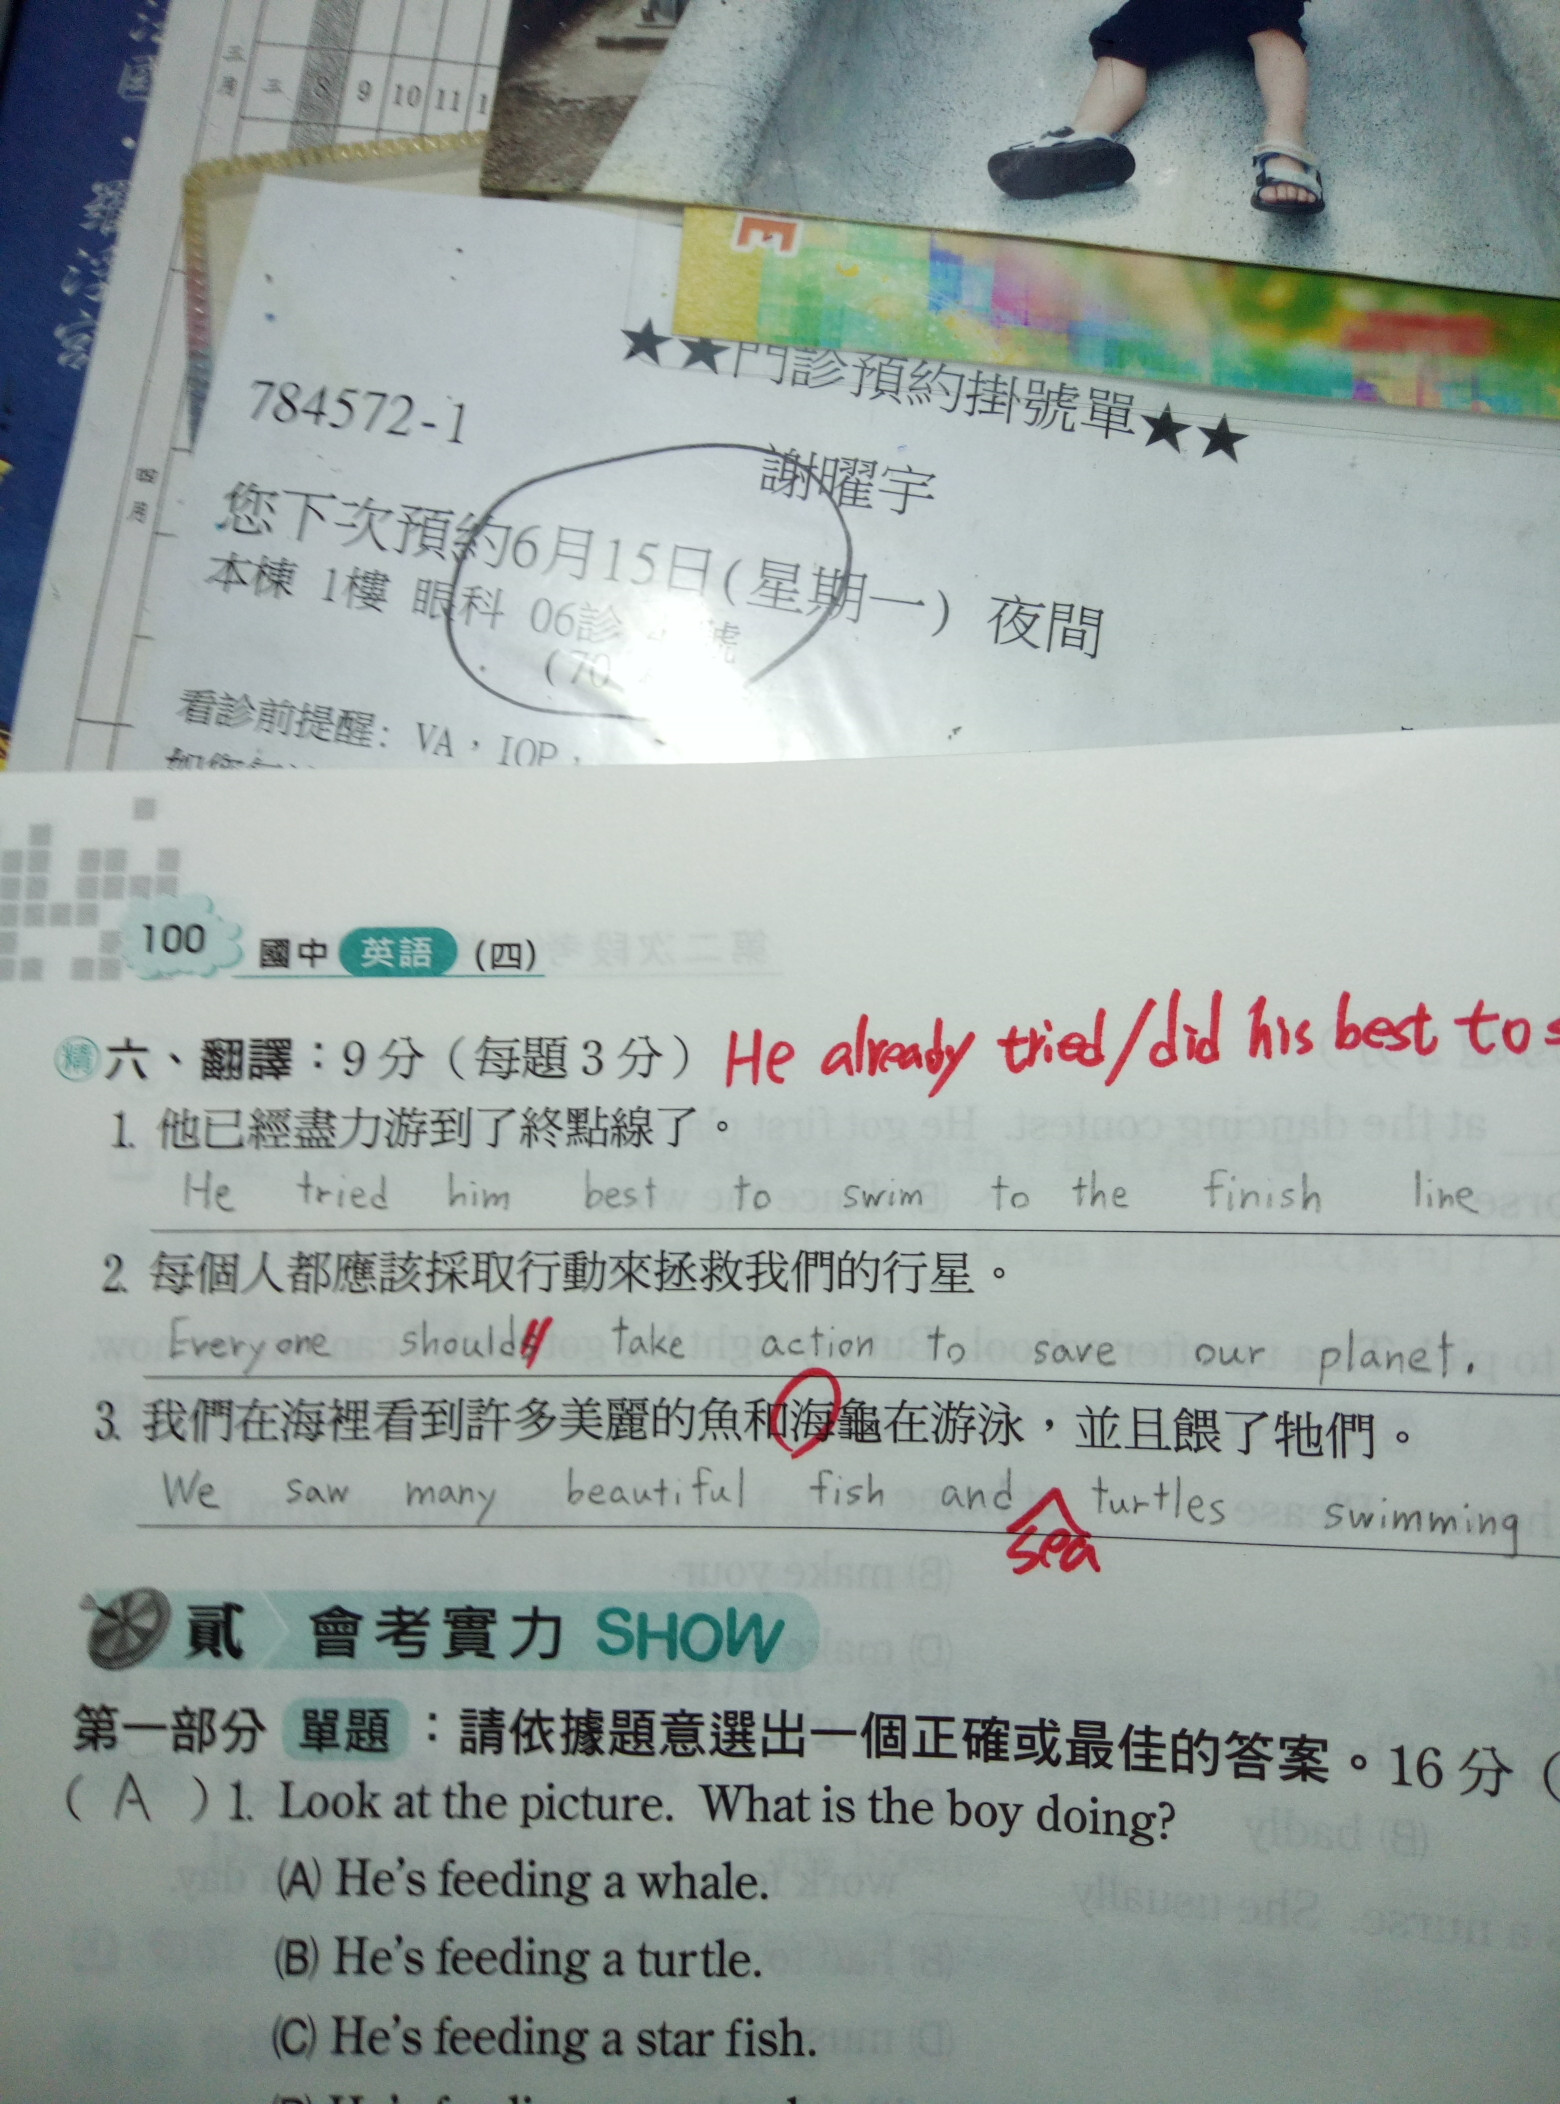 三月 三 8 9 10 11 1
E
★★門診預約掛號單★★
784572-1
謝曜宇
您下次預約6月15日(星期一) 夜間
本棟 1樓 眼科 06診 號
(70
四月
看診前提醒: VA,IOP,
100 國中 英語 (四)
精 六、翻譯:9分(每題3分) He already tried/did his best to s
1. 他已經盡力游到了終點線了。
He tried him best to swim to the finish line
2. 每個人都應該採取行動來拯救我們的行星。
Everyone should take action to save our planet.
3. 我們在海裡看到許多美麗的魚和海龜在游泳,並且餵了牠們。
We saw many beautiful fish and turtles swimming
sea
貳 會考實力 SHOW
第一部分 單題:請依據題意選出一個正確或最佳的答案。16分(
( A ) 1. Look at the picture. What is the boy doing?
(A) He's feeding a whale.
(B) He's feeding a turtle.
(C) He's feeding a star fish.